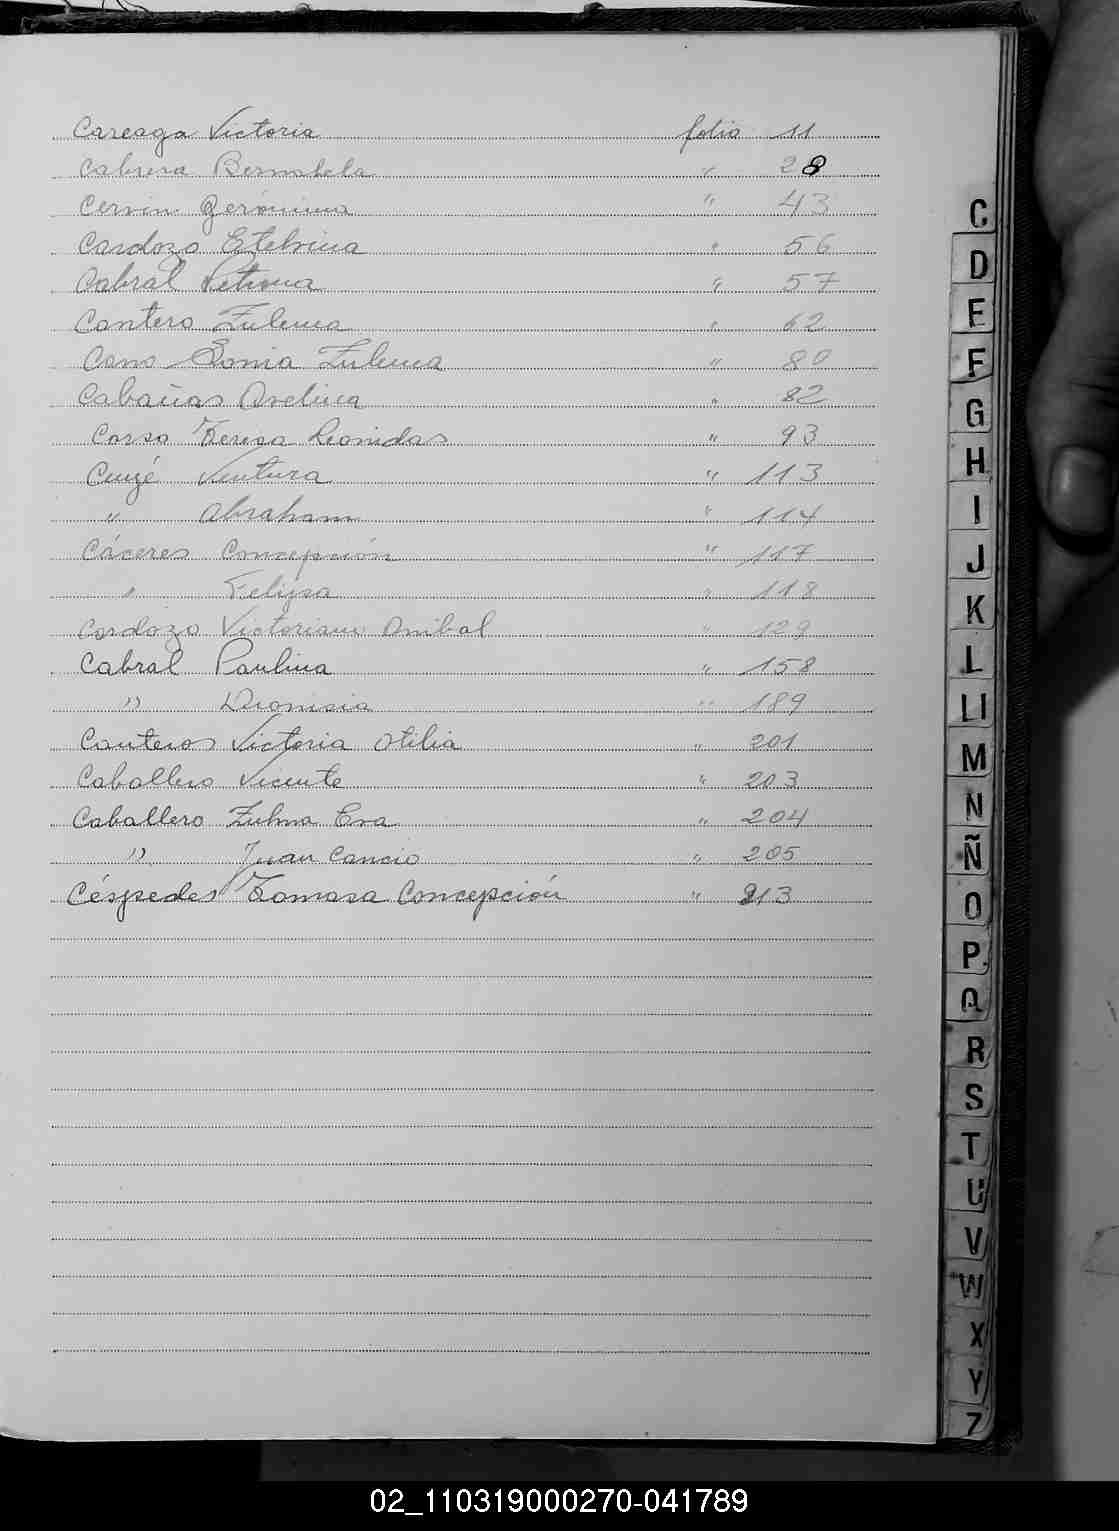 Careaga Victoria folio 11
Cabrera Bernabela " 28
Cervin Gerónima " 43
Cardozo Etelvina " 56
Cabral Petrona " 57
Cantero Zulema " 62
Cano Sonia Zulema " 80
Cabañas Avelina " 82
Corso Teresa Leonidas " 93
Ventura " 113
" Abraham " 114
Cáceres Concepción " 117
" Felipa " 118
Cardozo Victoriano Anibal " 129
Cabral Paulina " 158
" Dionisia " 189
Canteros Victoria Otilia " 201
Caballero Vicente " 203
Caballero Zulma Eva " 204
" Juan Cancio " 205
Céspedes Tomasa Concepción " 213
C
D
E
F
G
H
I
J
K
L
Ll
M
N
Ñ
O
P
Q
R
S
T
U
V
W
X
Y
Z
02_110319000270-041789